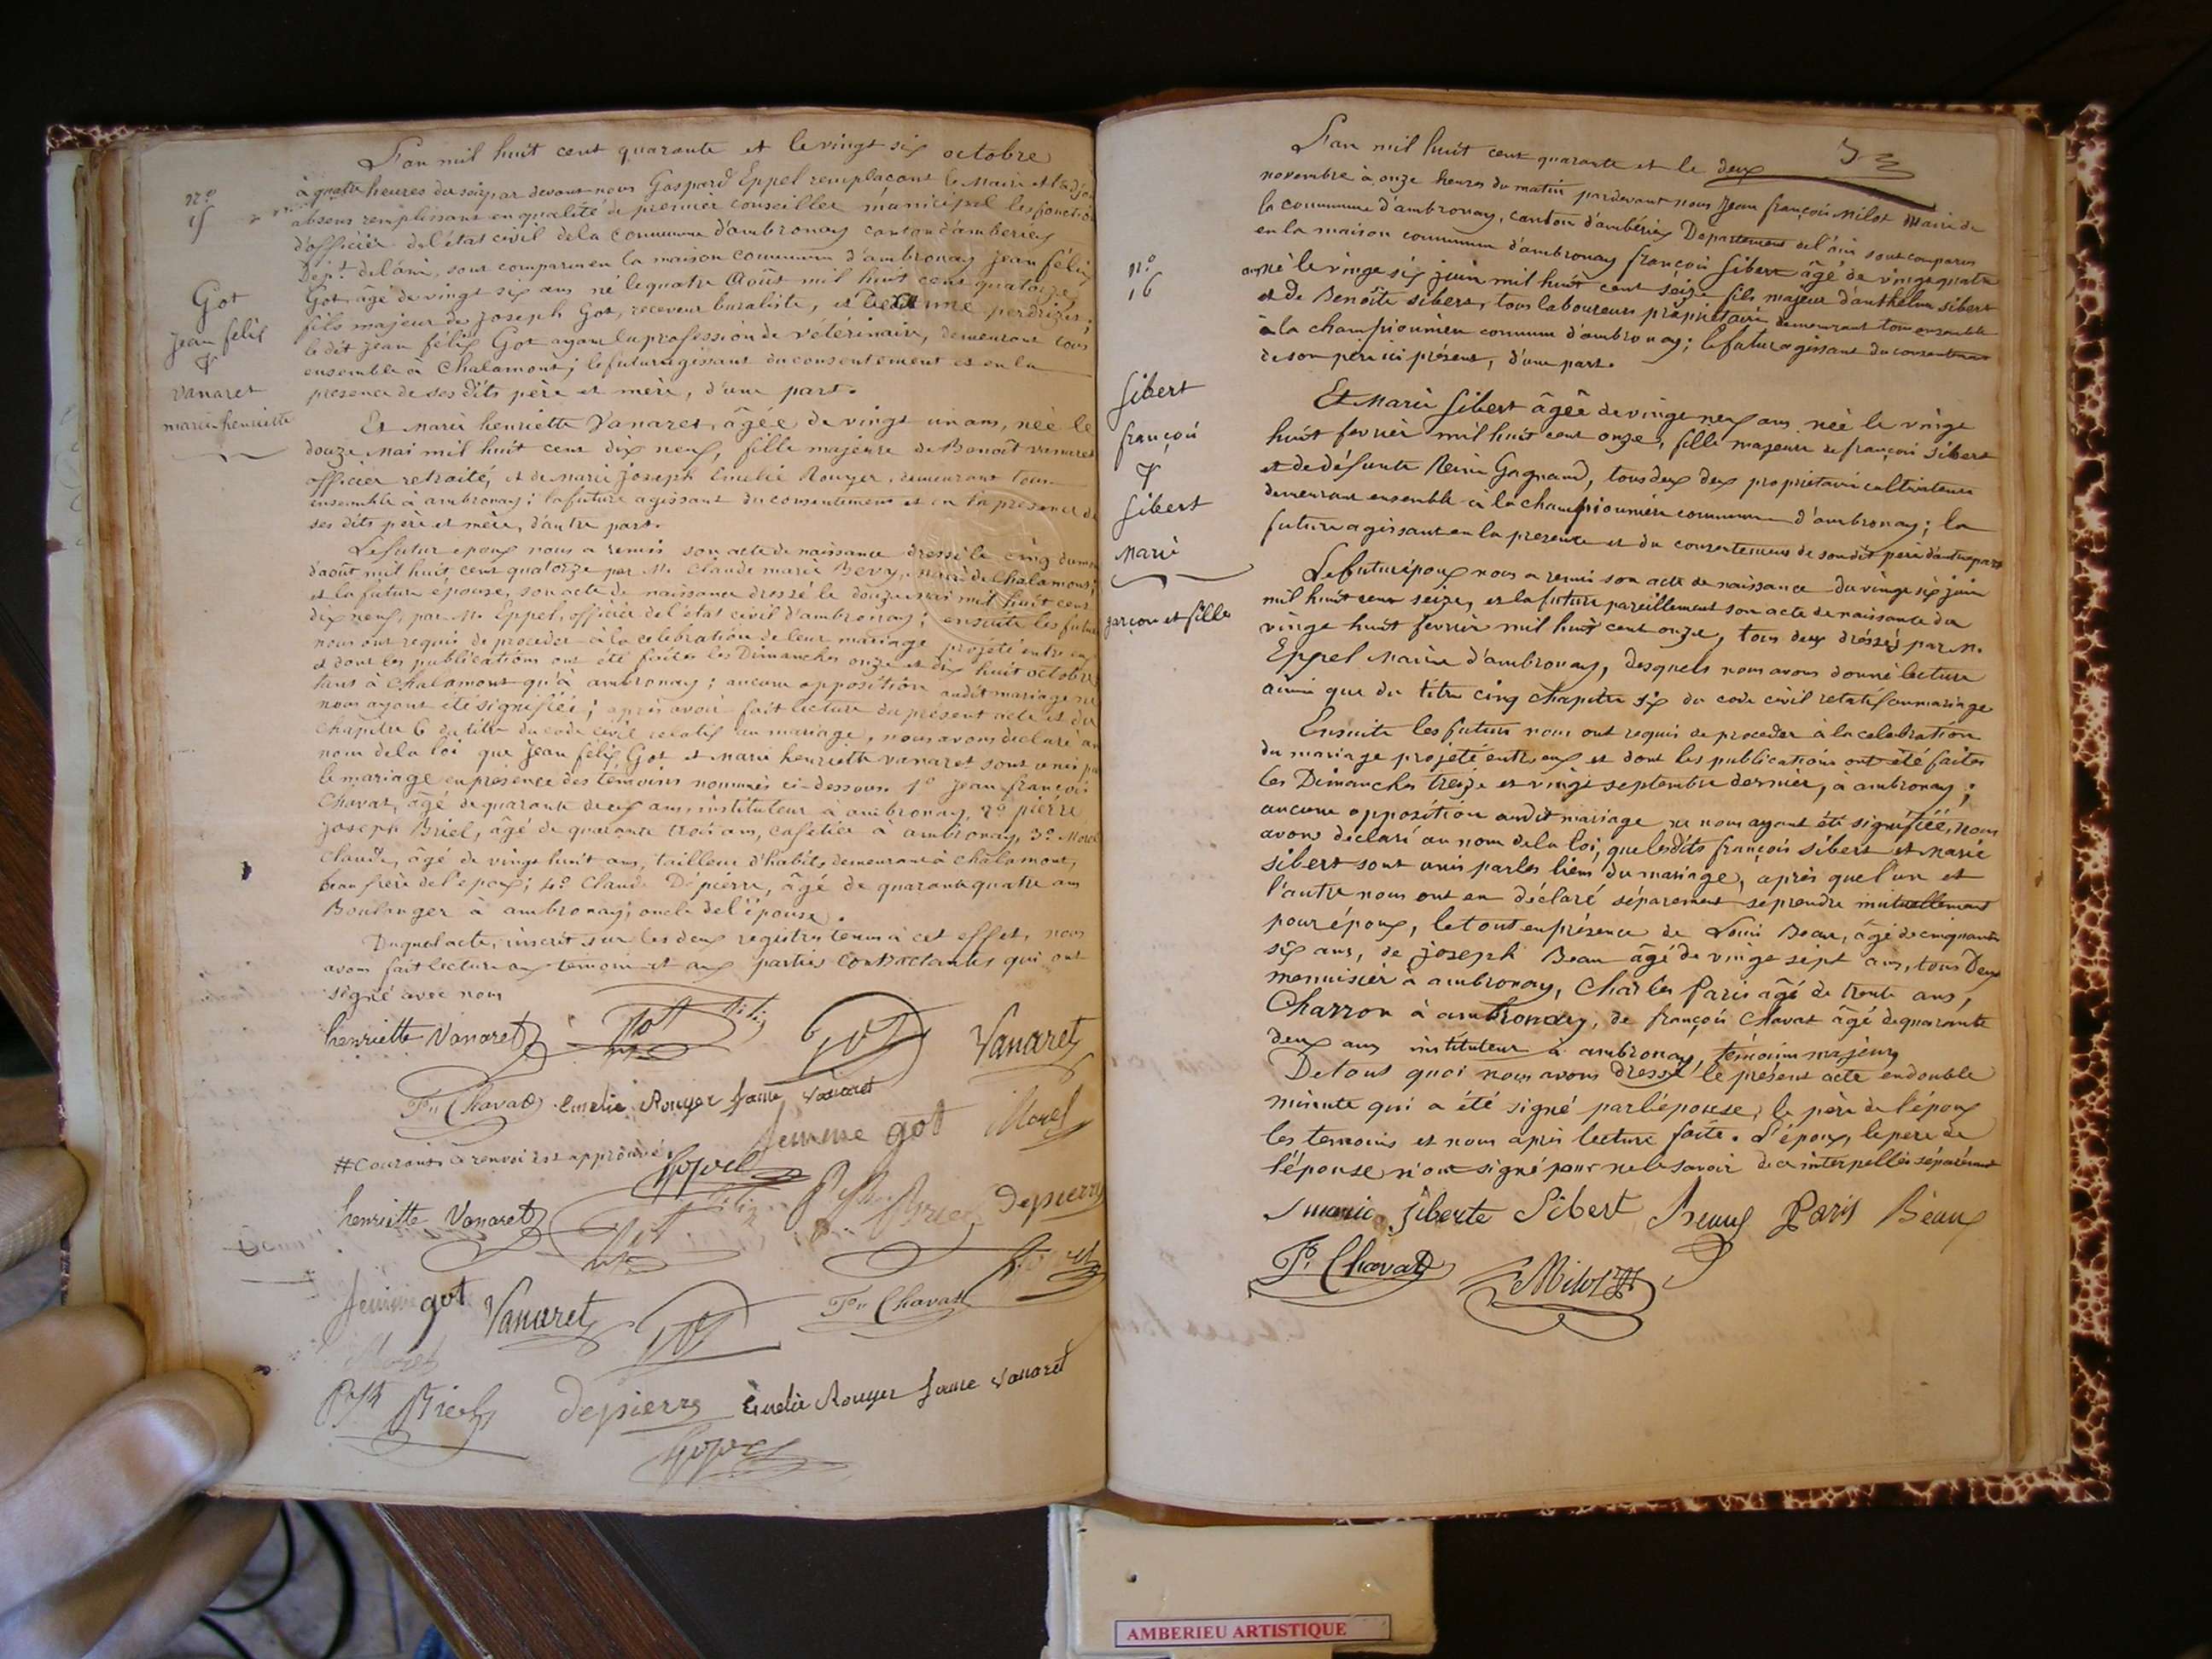 L'an mil huit cent quarante et le vingt six octobre
à quatre heures du soir par devant nous Gaspard Eppel remplaçant le Maire et l'adjoint
absens remplissant en qualité de premier conseiller municipal les fonctions
d'officier de l'état civil de la commune d'ambronay canton d'amberieu
Dép.t de l'ain, sont comparu en la maison commune d'ambronay jean félix
Got, âgé de vingt six ans né le quatre Août mil huit cent quatorze,
fils majeur de joseph Got, receveur buraliste, et de perdrizet;
le dit jean félix Got ayant la profession de vétérinaire, demeurant tous
ensemble à Chalamont; le futur agissant du consentement et en la
presence de ses dits père et mère, d'une part.
n.o
15
Got
jean felix
&
Vanaret
marie henriette
Et Marie henriette Vanaret, âgée de vingt un ans, née le
douze Mai mil huit cent dix neuf, fille majeure de Benoit Vanaret
officier retraité, et de marie joseph Emelie Rouyer, demeurant tous
ensemble à ambronay; la future agissant du consentement et en la présence de
ses dits père et mère, d'autre part.
Le futur epoux nous a remis son acte de naissance dressé le cinq du mois
d'août mil huit cent quatorze par M. Claude marie Bevy, maire de Chalamont;
et la future épouse, son acte de naissance dressé le douze mai mil huit cent
dix neuf, par M. Eppel, officier de l'état civil d'ambronay; ensuite les futurs
nous ont requis de proceder à la celebration de leur mariage projété entre eux
et dont les publications ont été faites les Dimanches onze et dix huit octobre
tant à Chalamont qu'à ambronay; aucune opposition audit mariage ne
nous ayant été signifiée; après avoir fait lecture du présent acte et du
chapitre 6 du titre du code civil relatif au mariage, nous avons declaré au
nom de la loi que jean felix Got et Marie henriette Vanaret sont unis par
le mariage en présence des témoins nommés ci-dessous 1.o jean françois
Chavat, âgé de quarante deux ans, instituteur à ambronay, 2.o pierre
joseph Briel, âgé de quarante trois ans, cafetier à ambronay, 3.o Morel
Claude, âgé de vingt huit ans, tailleur d'habits demeurant à chalamont,
beau frère de l'epoux; 4.o Claude Depierre, âgé de quarante quatre ans
Boulanger à ambronay; oncle de l'épouse.
Duquel acte, inscrit sur les deux registres tenus à cet effet, nous
avons fait lecture aux temoins et aux parties contractantes qui ont
signé avec nous
henriette Vanaret Got felix Got Vanaret
F.s Chavat Emelie Rouyer fame vanaret
femme got Morel
# courant ce renvoi est approuvé. Eppel
henriette Vanaret Got felix P J Briel Depierre
femme got Vanaret Got F.s Chavat Eppel
Morel
P J h Briel Depierre Emelie Rouyer fame vanaret
Eppel
L'an mil huit cent quarante et le deux
novembre à onze heures du matin pardevant nous Jean françois Milot Maire de
la commune d'ambronay, canton d'ambérieu Département de l'ain sont comparus
en la maison commune d'ambronay françois Sibert âgé de vingt quatre
ans né le vingt six juin mil huit cent seize fils majeur d'anthelme sibert
et de Benoîte sibert, tous laboureurs propriétaire demeurant tous ensemble
à la championnière commune d'ambronay; le futur agissant du consentement
de son père ici présent, d'une part.
n.o
16
Sibert
françois
&
Sibert
Marie
garçon et fille
Et Marie Sibert âgée de vingt neuf ans née le vingt
huit fevrier mil huit cent onze, fille majeure de françois Sibert
et de défunte Reine Gagnand, tous deux deux propriétaire cultivateurs
demeurant ensemble à la championnière commune d'ambronay; la
future agissant en la presence et du consentement de son dit père d'autre part
Le futur époux nous a remis son acte de naissance du vingt six juin
mil huit cent seize, et la future pareillement son acte de naissance du
vingt huit fevrier mil huit cent onze, tous deux dréssés par M.
Eppel Maire d'ambronay, desquels nous avons donné lecture
ainsi que du titre cinq chapitre six du code civil relatif au mariage
Ensuite les futurs nous ont requis de proceder à la celebration
du mariage projeté entr'eux et dont les publications ont été faites
les Dimanches treize et vingt septembre dernier, à ambronay;
aucune opposition audit mariage ne nous ayant été signifiée, nous
avons déclaré au nom de la loi, que lesdits françois sibert et Marie
sibert sont unis par les liens du mariage, après que l'un et
l'autre nous ont eu déclaré séparement se prendre mutuellement
pour époux, le tout en présence de Louis Beau, âgé de cinquante
six ans, de joseph Beau âgé de vingt sept ans, tous Deux
menuisier à ambronay, Charles Paris âgé de trente ans,
Charron à ambronay, de françois Chavat âgé de quarante
deux ans instituteur à ambronay, témoins majeurs
De tout quoi nous avons dressé le présent acte en double
minute qui a été signé par l'épouse, le père de l'époux
les temoins et nous après lecture faite. L'époux, le pere de
l'épouse n'ont signé pour ne le savoir de ce interpellés séparément
marie siberte Sibert Beaux Paris Beaux
F.s Chavat Milot
AMBERIEU ARTISTIQUE